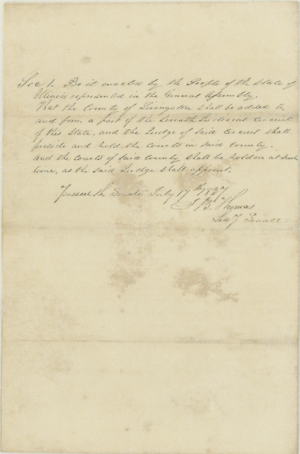 Sec 1. Be it enacted by the People of the State of
Illinois represented in the General Assembly.
That the County of Livingston shall be added to
and form a part of the Seventh Judicial Circuit
of this State, and the Judge of said Circuit shall
preside and hold the Courts in said County.
and the Courts of said County shall be holden at such
times, as the said Judge shall appoint.
Passed the Senate July 17th 1837
J. B. Thomas
Secy Senate